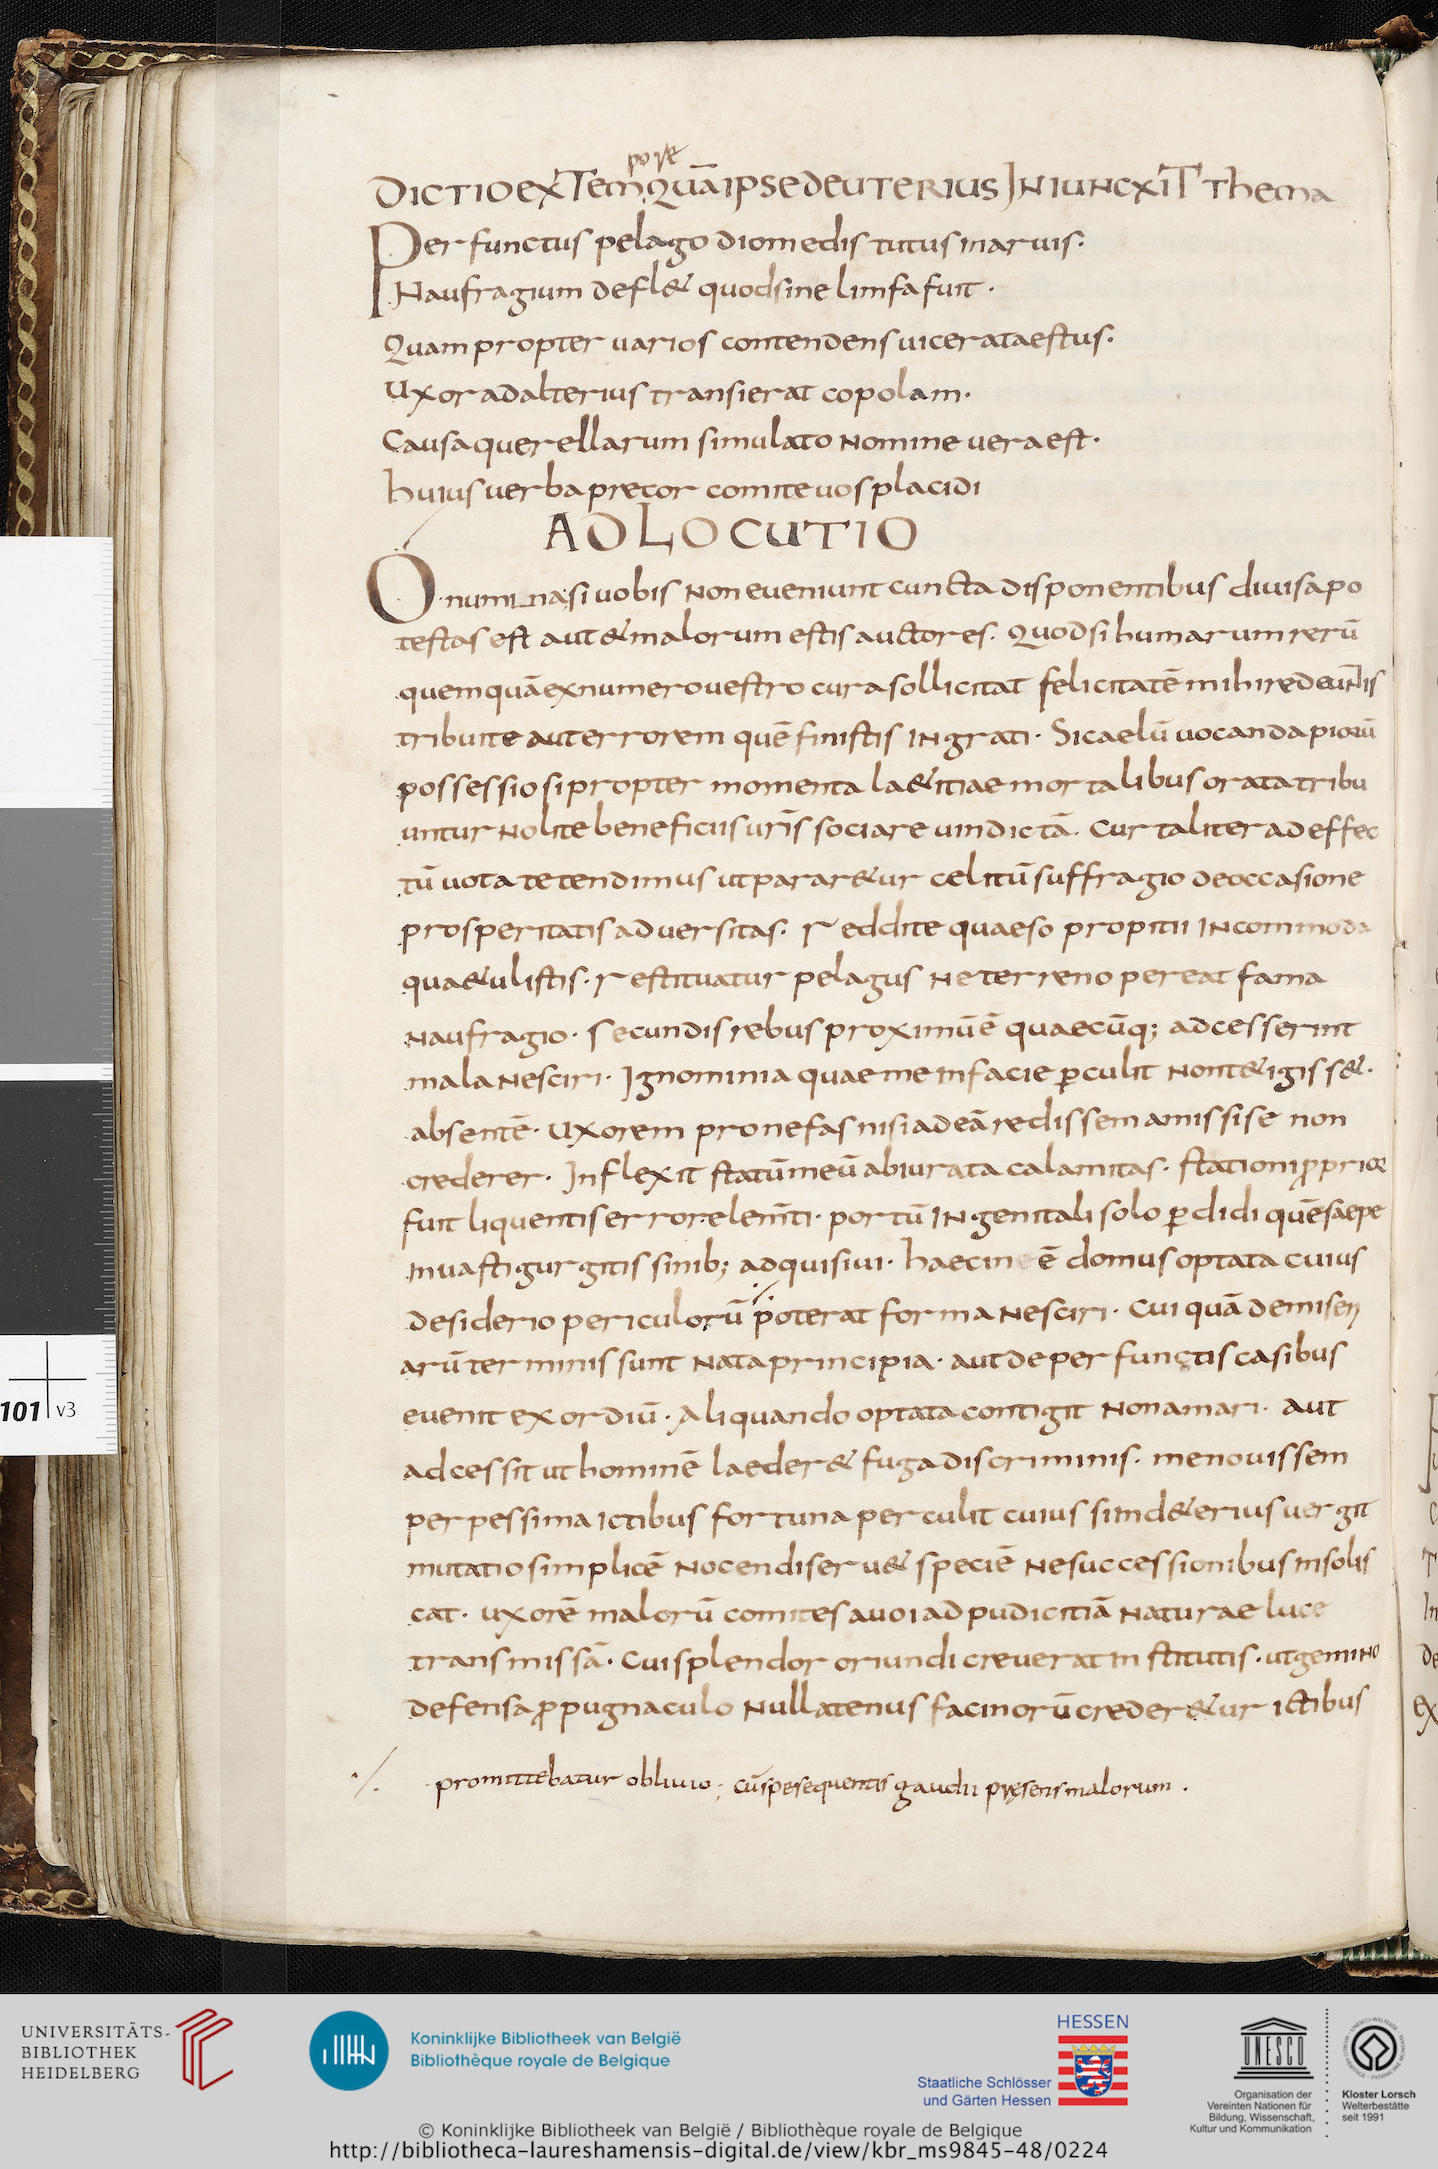 pore
DICTIO EX Tem QUĀ IPSE DEUTERIUS INIUNCXIT Thema
Perfunctus pelago diomedis tutus in aruis·
Naufragium defl& quod sine limfa fuit·
Quam propter uarios contendens uicerat aestus·
Uxor ad alterius transierat copolam·
Causa querellarum simulato nomine uera est·
huius uerba precor comite uos placidi
ADLOCUTIO
O numina si uobis non eueniunt cuncta disponentibus diuisa po
testas est aut & malorum estis auctores· Quod si humarum rerū
quemquā ex numero uestro cura sollicitat felicitatē mihi redeunīs
tribuite aut errorem quē finistis ingrati· Sic aelū uocanda piorū
possessio si propter momenta la&itiae mortalibus orata tribu
untur nolite beneficiis uris̄ sociare uindictā· Cur taliter ad effec
tū uota tetendimus ut parar&ur celitū suffragio de occasione
prosperitatis aduersitas· reddite quaeso propitii incommoda
quae uulistis· restituatur pelagus ne terreno pereat fama
naufragio· secundis rebus proximū ē quaecūq; adcesserint
mala nesciri· Ignominia quae me in facie ꝑculit non t&igiss&·
absentē· Uxorem pro nefas nisi ad eā redissem amissise non
crederer· Inflexit statū meū abiurata calamitas· stationi ꝓpriae
fuit liquentis error elem̄ti· portū in genitali solo ꝑdidi quē saepe
in uasti gurgitis sinib; adquisiui· haecin ē domus optata cuius
desiderio periculorū poterat forma nesciri· Cui quā de miseri
arū terminis sunt nata principia· aut de perfunctis casibus
euenit exordiū· aliquando optata contigit non amari· aut
adcessit ut hominē laeder& fuga discriminis· me nouissem
per pessima ictibus fortuna perculit cuius si in d&erius uergit
mutatio simplicē nocendi seru& speciē ne successionibus insolis
cat· uxorē malorū comites auoi ad pudicitiā naturae luce
transmissā· Cui splendor oriundi creuerat institutis· ut gemino
defensa ꝓpugnaculo nullatenus facinorū creder&ur ictibus
promittebatur obliuio; cū spe sequentis gaudii pręsens malorum·
101 v3
UNIVERSITÄTS-
BIBLIOTHEK
HEIDELBERG
Koninklijke Bibliotheek van België
Bibliothèque royale de Belgique
HESSEN
Staatliche Schlösser
und Gärten Hessen
UNESCO
Organisation der
Vereinten Nationen für
Bildung, Wissenschaft,
Kultur und Kommunikation
Kloster Lorsch
Welterbestätte
seit 1991
© Koninklijke Bibliotheek van België / Bibliothèque royale de Belgique
http://bibliotheca-laureshamensis-digital.de/view/kbr_ms9845-48/0224